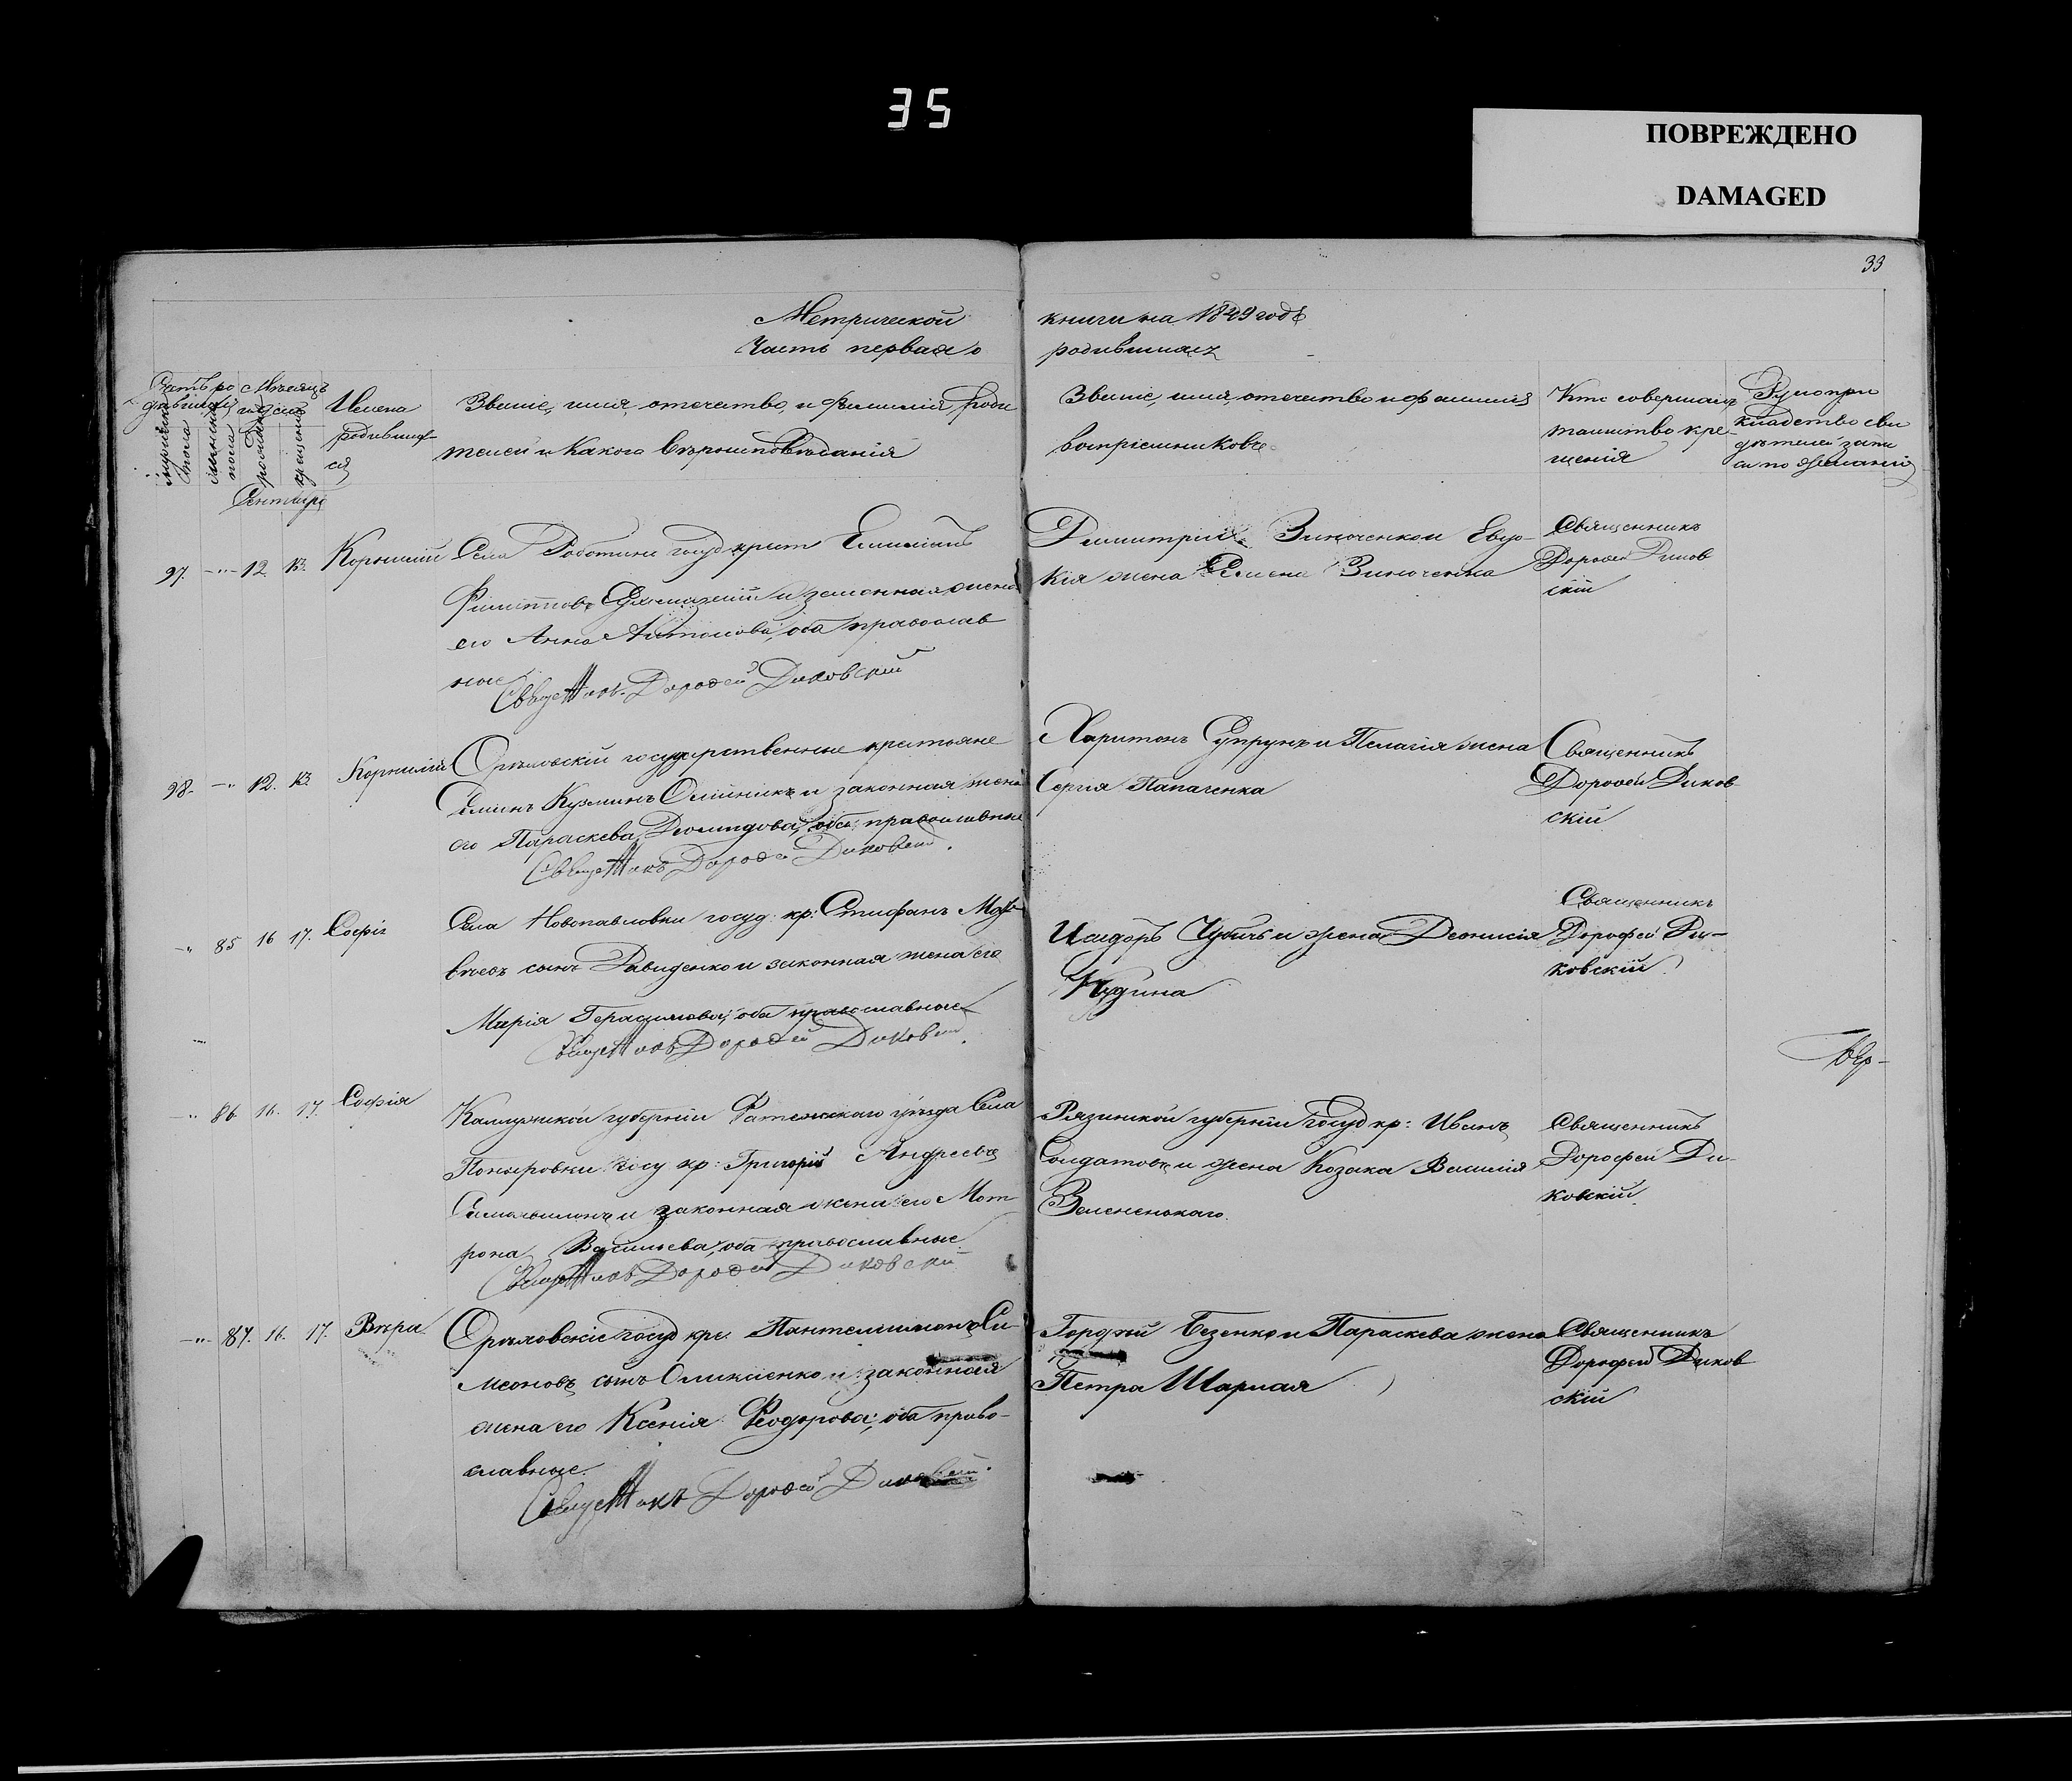 35
ПОВРЕЖДЕНО
DAMAGED
33
Метрической книги на 1849 годъ
Часть первая о родившихся
Счетъ ро Мѣсяцъ
и день
мужеска пола
женска пола
рожденія
крещенія
Имена
родивших
ся
Званіе, имя, отечество, и фамилія роди
телей и какого вѣроисповѣданія
Званіе, имя, отечество и фамилія
воспріемниковъ
Кто совершалъ
таинство кре-
щенія
Рукопри
кладство сви
дѣтелей запи
си по желанію
Сентябрь
97. -"- 12. 13. Корнилій Села Роботина госуд крест Емиліанъ
Филиповъ и законная жена
его Анна оба православ
ные
Священникъ Дорофей Диковскій
Димитрій Зинченко и Евдо-
кія жена Зинченка
Священникъ
Дорофей Диков
скій
98. -"- 12. 13. Корнилій Орѣховскіи государственные крестьяне
Кузминъ Олійникъ и законная жена
его Параскева Діомидова, оба православные
Священникъ Дорофей Диковскій.
Харитонъ Супрунъ и Пелагія жена
Сергія Папаченка
Священникъ
Дорофей Диков-
скій
-"- 85 16 17. Софія Села Новопавловки госуд: кр: Стефанъ Мат-
вѣевъ сынъ Давиденко и законная жена его
Марія Герасимова, оба православные
Священникъ Дорофей Диковскій.
Исидоръ и жена Деонисія
Кудина
Священникъ
Дорофей Ди-
ковскій
-"- 86. 16. 17. Софія Калужской губерніи уѣзда Села
госу кр: Григорій Андреевъ
и законная жена его Мот-
рона Васильева, оба православные
Священникъ Дорофей Диковскій
Рязанской губерніи госуд кр: Иванъ
Солдатовъ и жена Козака Василія
Зелененькаго.
Священникъ
Дорофей Ди-
ковскій
-"- 87. 16. 17. Вѣра Орѣховскіе госуд кре. Пантелеимонъ Си-
меоновъ сынъ и законная
жена его Ксенія Феодорова, оба право-
славные.
Священникъ Дорофей Диковскій.
Гордѣй Безенко и Параскева жена
Петра Шарлая
Священникъ
Дорофей Диков
скій